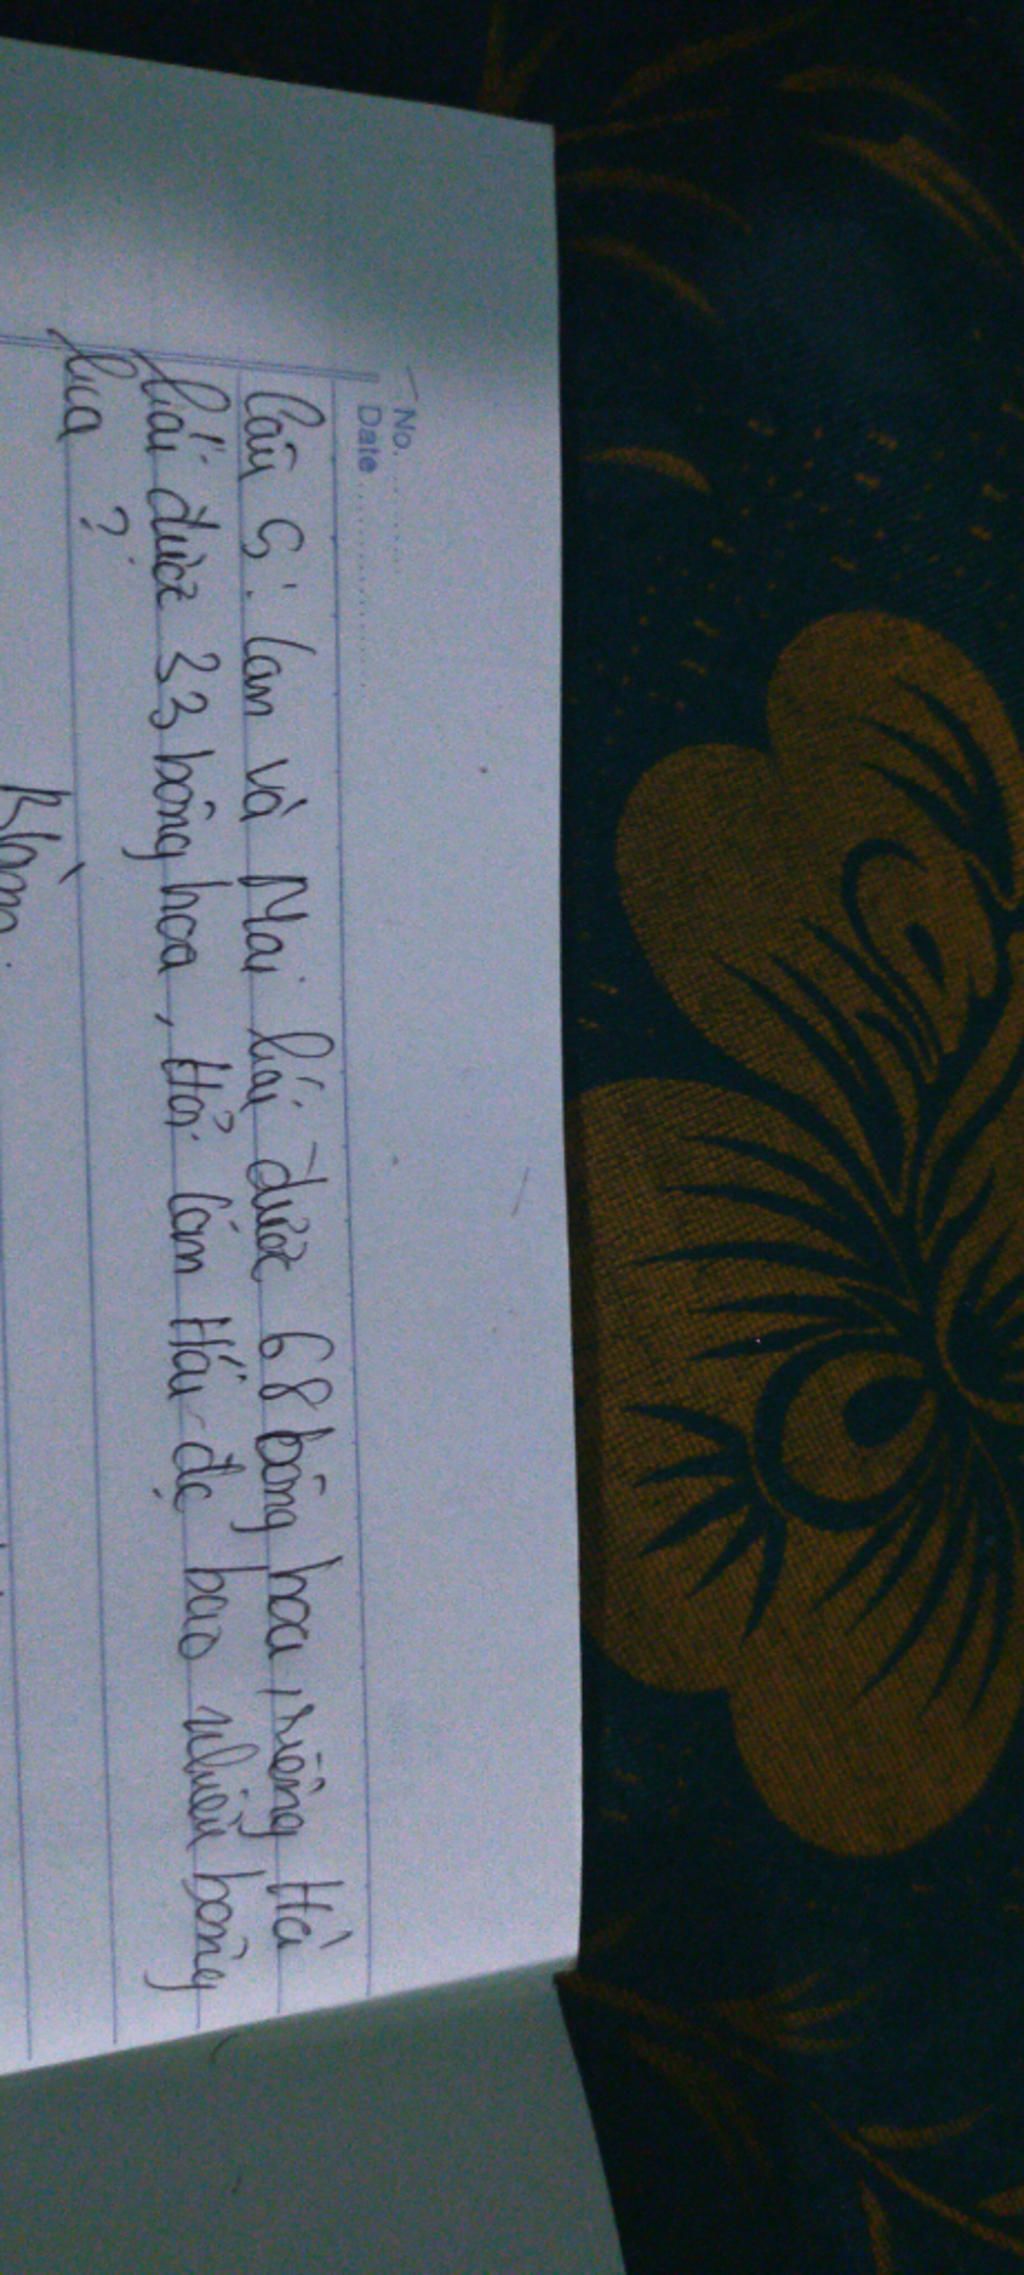 No. ..........
Date ....................
Câu 5: Lan và Mai hái được 68 bông hoa, riêng Hà
hái được 33 bông hoa, Hỏi Lan Hái đc bao nhiêu bông
hoa ?